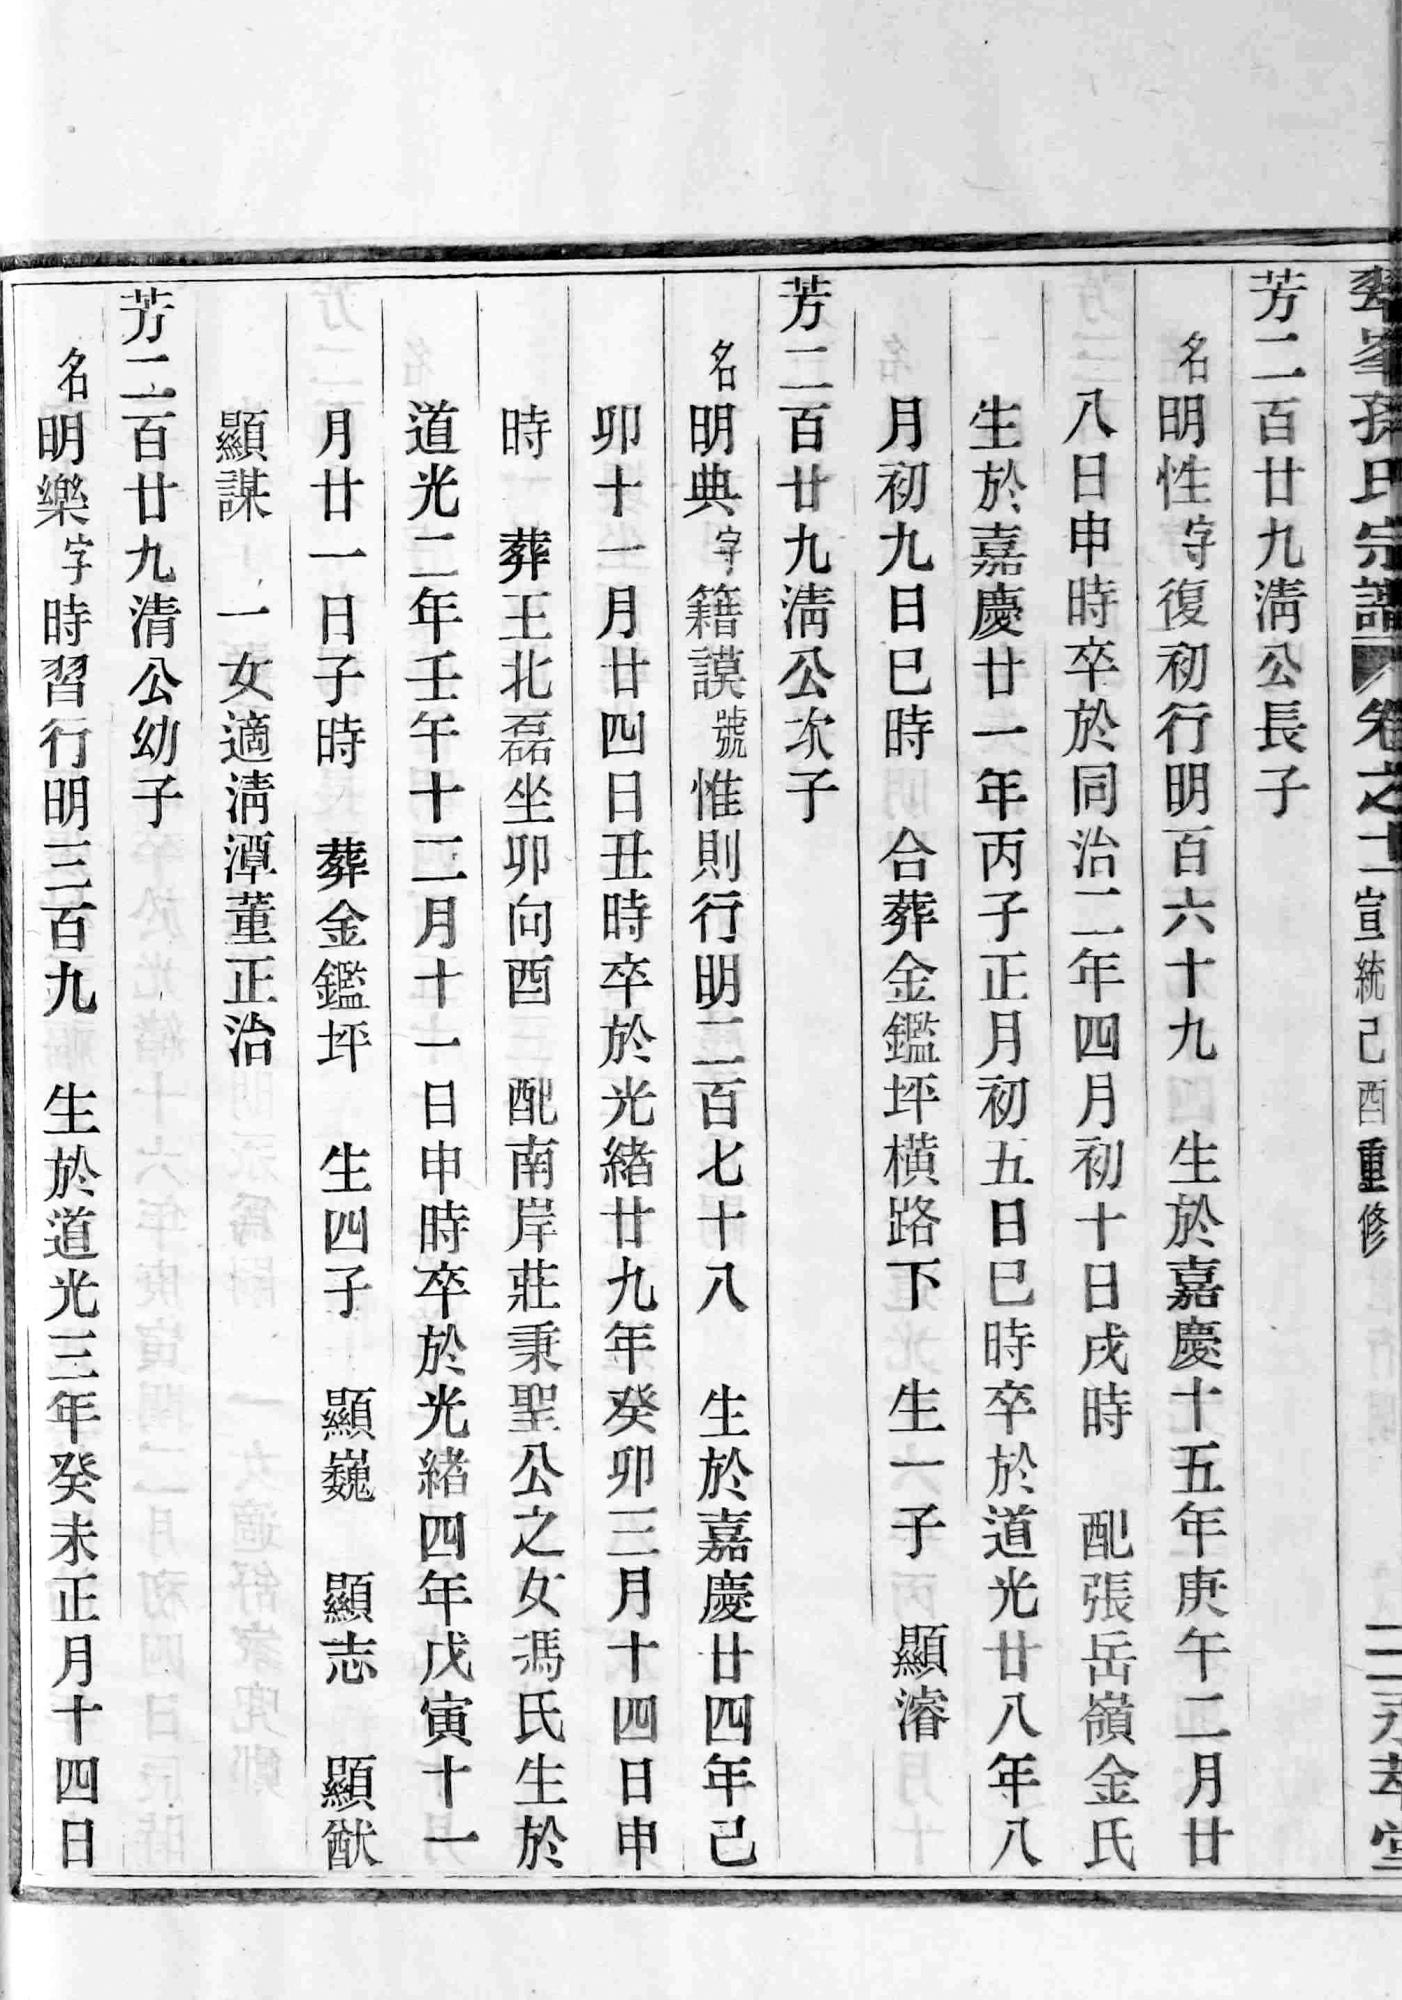 峯孫氏宗譜 卷之十二 宣統己酉重修 二 永萃堂
芳二百廿九淸公長子
名明性字復初行明百六十九 生於嘉慶十五年庚午二月廿
八日申時卒於同治二年四月初十日戌時 配張岳嶺金氏
生於嘉慶廿一年丙子正月初五日巳時卒於道光廿八年八
月初九日巳時 合葬金鑑坪橫路下 生一子 顯濬
芳二百廿九淸公次子
名明典字籍謨號惟則行明二百七十八 生於嘉慶廿四年己
卯十一月廿四日丑時卒於光緒廿九年癸卯三月十四日申
時 葬王北磊坐卯向酉 配南岸莊秉聖公之女馮氏生於
道光二年壬午十二月十一日申時卒於光緒四年戊寅十一
月廿一日子時 葬金鑑坪 生四子 顯巍 顯志 顯猷
顯謀 一女適淸潭董正治
芳二百廿九清公幼子
名明樂字時習行明三百九 生於道光三年癸未正月十四日